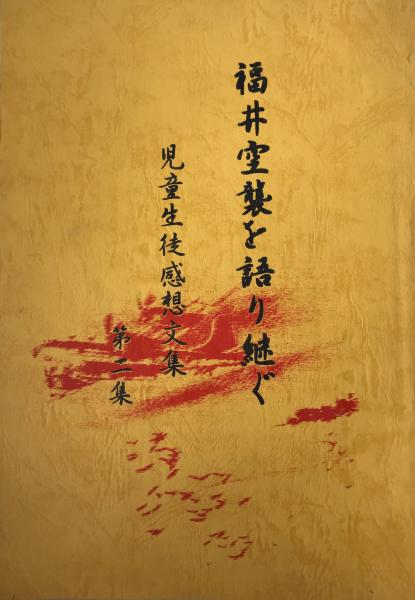 福井空襲を語り継ぐ
児童生徒感想文集
第二集